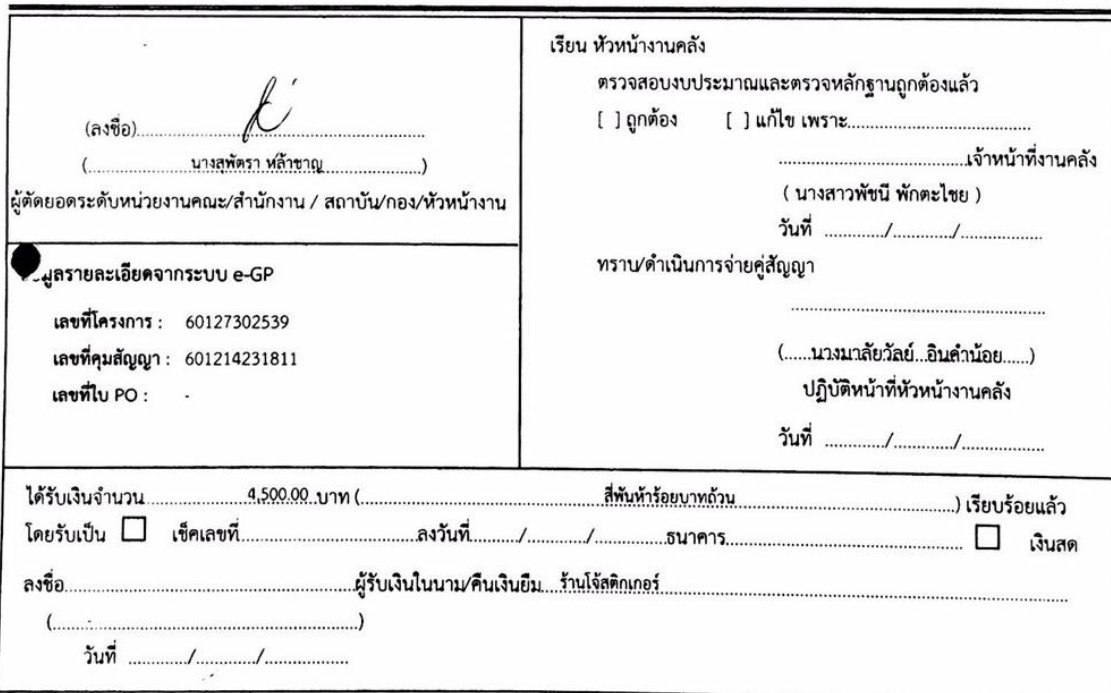 (ลงชื่อ)
(นางสุพัตรา หล้าชาญ)
ผู้ตัดยอดระดับหน่วยงานคณะ/สำนักงาน / สถาบัน/กอง/หัวหน้างาน
มูลรายละเอียดจากระบบ e-GP
เลขที่โครงการ : 60127302539
เลขที่คุมสัญญา : 601214231811
เลขที่ใบ PO : -
เรียน หัวหน้างานคลัง
ตรวจสอบงบประมาณและตรวจหลักฐานถูกต้องแล้ว
[ ] ถูกต้อง [ ] แก้ไข เพราะ
เจ้าหน้าที่งานคลัง
( นางสาวพัชนี พักตะไชย )
วันที่ ............/............/.....................
ทราบ/ดำเนินการจ่ายคู่สัญญา
(......นวงมาลัยวัลย์...อินคำน้อย......)
ปฏิบัติหน้าที่หัวหน้างานคลัง
วันที่ ............/............/.....................
ได้รับเงินจำนวน 4,500.00 บาท ( สี่พันห้าร้อยบาทถ้วน ) เรียบร้อยแล้ว
โดยรับเป็น ☐ เช็คเลขที่ ลงวันที่ ........./............/............. ธนาคาร ☐ เงินสด
ลงชื่อ ผู้รับเงินในนาม/คืนเงินยืม ร้านโจ้สติกเกอร์
(..............................................................)
วันที่ ............/............/.................